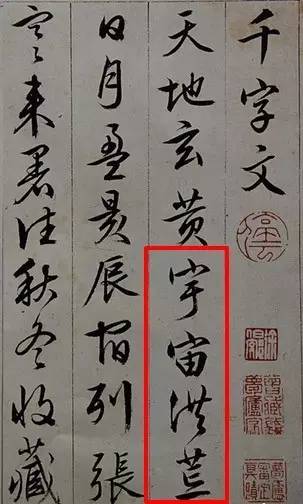 千字文
天地玄黄宇宙洪荒
日月盈昃辰宿列張
寒来暑往秋冬收藏